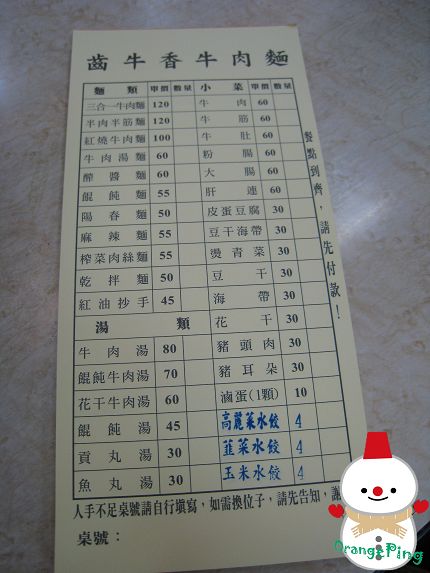 齒牛香牛肉麵
麵類 單價 數量 小菜 單價 數量
三合一牛肉麵 120 牛肉 60
半肉半筋麵 120 牛筋 60
紅燒牛肉麵 100 牛肚 60
牛肉湯麵 60 粉腸 60
醡醬麵 60 大腸 60
餛飩麵 55 肝連 60
陽春麵 50 皮蛋豆腐 30
麻辣麵 55 豆干海帶 30
榨菜肉絲麵 55 燙青菜 30
乾拌麵 50 豆干 30
紅油抄手 45 海帶 30
湯類 花干 30
牛肉湯 80 豬頭肉 30
餛飩牛肉湯 70 豬耳朵 30
花干牛肉湯 60 滷蛋(1顆) 10
餛飩湯 45 高麗菜水餃 4
貢丸湯 30 韮菜水餃 4
魚丸湯 30 玉米水餃 4
餐點到齊，請先付款！
人手不足桌號請自行填寫，如需換位子，請先告知，謝
桌號：
Orange Ping